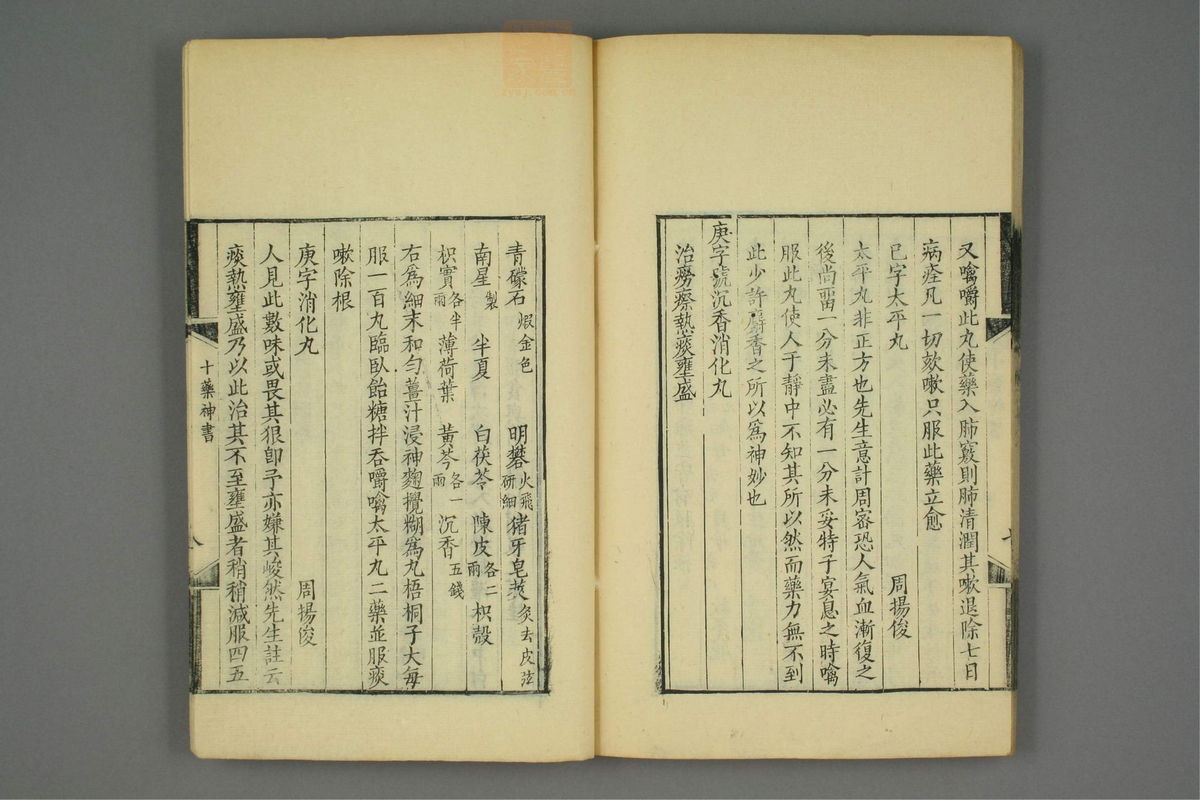 又噙嚼此丸使藥入肺竅則肺清潤其嗽退除七日
病痊凡一切欬嗽只服此藥立愈
已字太平丸 周揚俊
太平丸非正方也先生意計周密恐人氣血漸復之
後尚畱一分未盡必有一分未妥特于宴息之時噙
服此丸使人于靜中不知其所以然而藥力無不到
此少許麝香之所以爲神妙也
庚字號沉香消化丸
治癆瘵熱痰壅盛
青礞石煅金色 明礬火飛研細 猪牙皂莢炙去皮弦
南星製 半夏 白茯苓 陳皮各二兩 枳殼
枳實各半兩 薄荷葉 黃芩各一兩 沉香五錢
右爲細末和勻薑汁浸神麴攪糊爲丸梧桐子大每
服一百丸臨臥飴糖拌吞嚼噙太平丸二藥並服痰
嗽除根
庚字消化丸 周揚俊
人見此數味或畏其狠卽予亦嫌其峻然先生註云
痰熱壅盛乃以此治其不至壅盛者稍稍減服四五
十藥神書
八